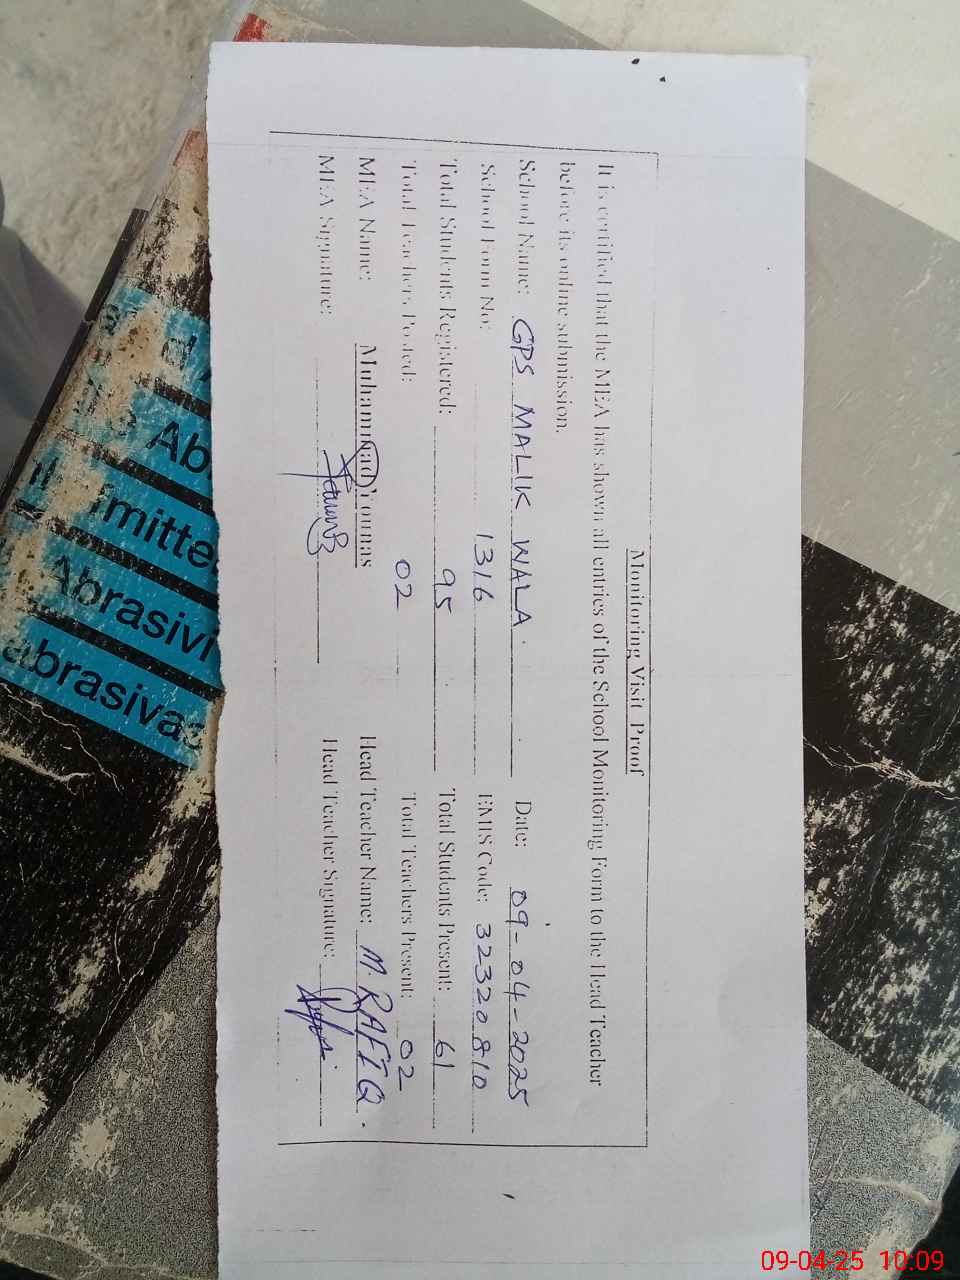 Monitoring Visit Proof
It is certified that the MEA has shown all entries of the School Monitoring Form to the Head Teacher
before its online submission.
School Name: GPS MALIK WALA Date: 09-04-2025
School Form No: 1316 EMIS Code: 32320810
Total Students Registered: 95 Total Students Present: 61
Total Teachers Posted: 02 Total Teachers Present: 02
MEA Name: Muhammad Younas Head Teacher Name: M. RAFIQ
MEA Signature: Head Teacher Signature:
Ab
mitte
Abrasivi
abrasivas
09-04-25 10:09